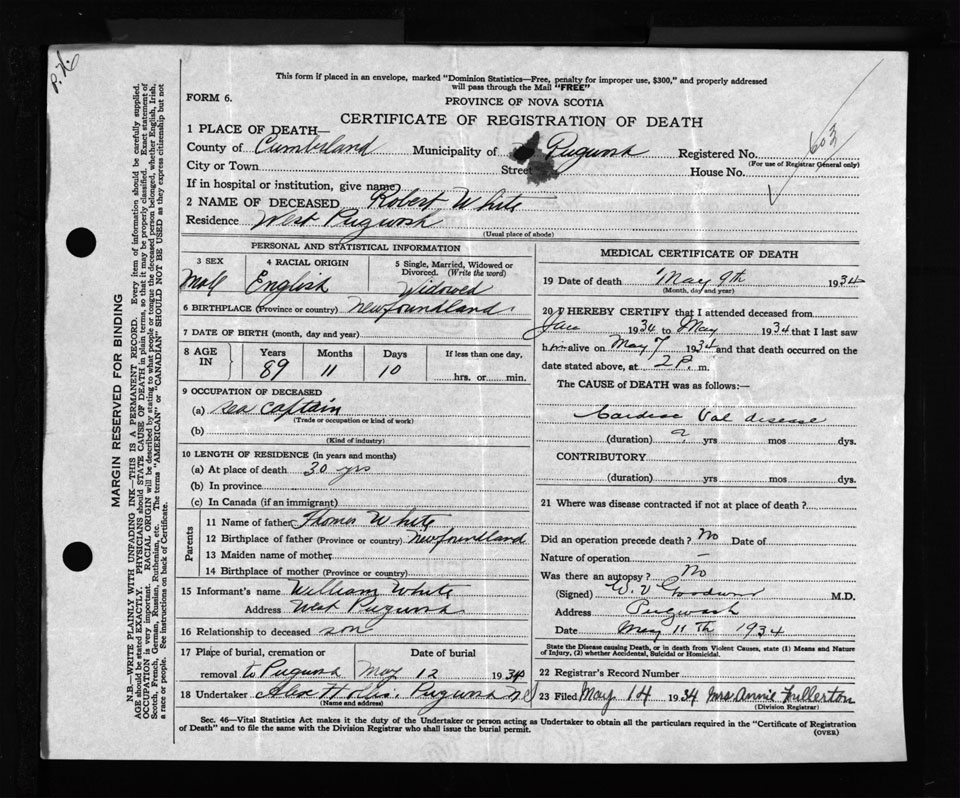 P.H.
This form if placed in an envelope, marked "Dominion Statistics—Free, penalty for improper use, $300," and properly addressed
will pass through the Mail "FREE"
FORM 6.
PROVINCE OF NOVA SCOTIA
CERTIFICATE OF REGISTRATION OF DEATH
603
1 PLACE OF DEATH—
County of Cumberland Municipality of Pugwash Registered No.
(For use of Registrar General only)
City or Town Street House No.
If in hospital or institution, give name
2 NAME OF DECEASED Robert White
Residence West Pugwash
(Usual place of abode)
PERSONAL AND STATISTICAL INFORMATION
3 SEX 4 RACIAL ORIGIN 5 Single, Married, Widowed or Divorced. (Write the word)
Male English Widowed
6 BIRTHPLACE (Province or country) Newfoundland
7 DATE OF BIRTH (month, day and year)
8 AGE IN Years Months Days If less than one day,
89 11 10 hrs. or min.
9 OCCUPATION OF DECEASED
(a) Sea Captain
(Trade or occupation or kind of work)
(b)
(Kind of industry)
10 LENGTH OF RESIDENCE (in years and months)
(a) At place of death 30 yrs
(b) In province
(c) In Canada (if an immigrant)
Parents
11 Name of father Thomas White
12 Birthplace of father (Province or country) Newfoundland
13 Maiden name of mother
14 Birthplace of mother (Province or country)
15 Informant's name William White
Address West Pugwash
16 Relationship to deceased son
17 Place of burial, cremation or Date of burial
removal to Pugwash May 12 1934
18 Undertaker Pugwash N S
(Name and address)
MEDICAL CERTIFICATE OF DEATH
19 Date of death May 9th 1934
(Month, day and year)
20 I HEREBY CERTIFY that I attended deceased from
Jan 1934 to May 1934 that I last saw
him alive on May 7 1934 and that death occurred on the
date stated above, at 2 P. m.
The CAUSE of DEATH was as follows:—
Cardiac Val disease
(duration) 2 yrs mos dys.
CONTRIBUTORY
(duration) yrs mos dys.
21 Where was disease contracted if not at place of death?
Did an operation precede death? No Date of
Nature of operation —
Was there an autopsy? No
(Signed) M.D.
Address Pugwash
Date May 11th 1934
State the Disease causing Death, or in death from Violent Causes, state (1) Means and Nature
of Injury, (2) whether Accidental, Suicidal or Homicidal.
22 Registrar's Record Number
23 Filed May 14 1934 Mrs Annie Fullerton
(Division Registrar)
Sec. 46—Vital Statistics Act makes it the duty of the Undertaker or person acting as Undertaker to obtain all the particulars required in the "Certificate of Registration
of Death" and to file the same with the Division Registrar who shall issue the burial permit.
(OVER)
MARGIN RESERVED FOR BINDING
N.B.—WRITE PLAINLY WITH UNFADING INK—THIS IS A PERMANENT RECORD. Every item of information should be carefully supplied.
AGE should be stated EXACTLY. PHYSICIANS should STATE CAUSE OF DEATH in plain terms, so that it may be properly classified. Exact statement of
OCCUPATION is very important. RACIAL ORIGIN will be described by stating to what people or tongue the deceased person belonged, whether English, Irish,
Scotch, French, German, Russian, Ruthenian, etc. The terms "AMERICAN" or "CANADIAN" SHOULD NOT BE USED as they express citizenship but not
a race or people. See instructions on back of Certificate.